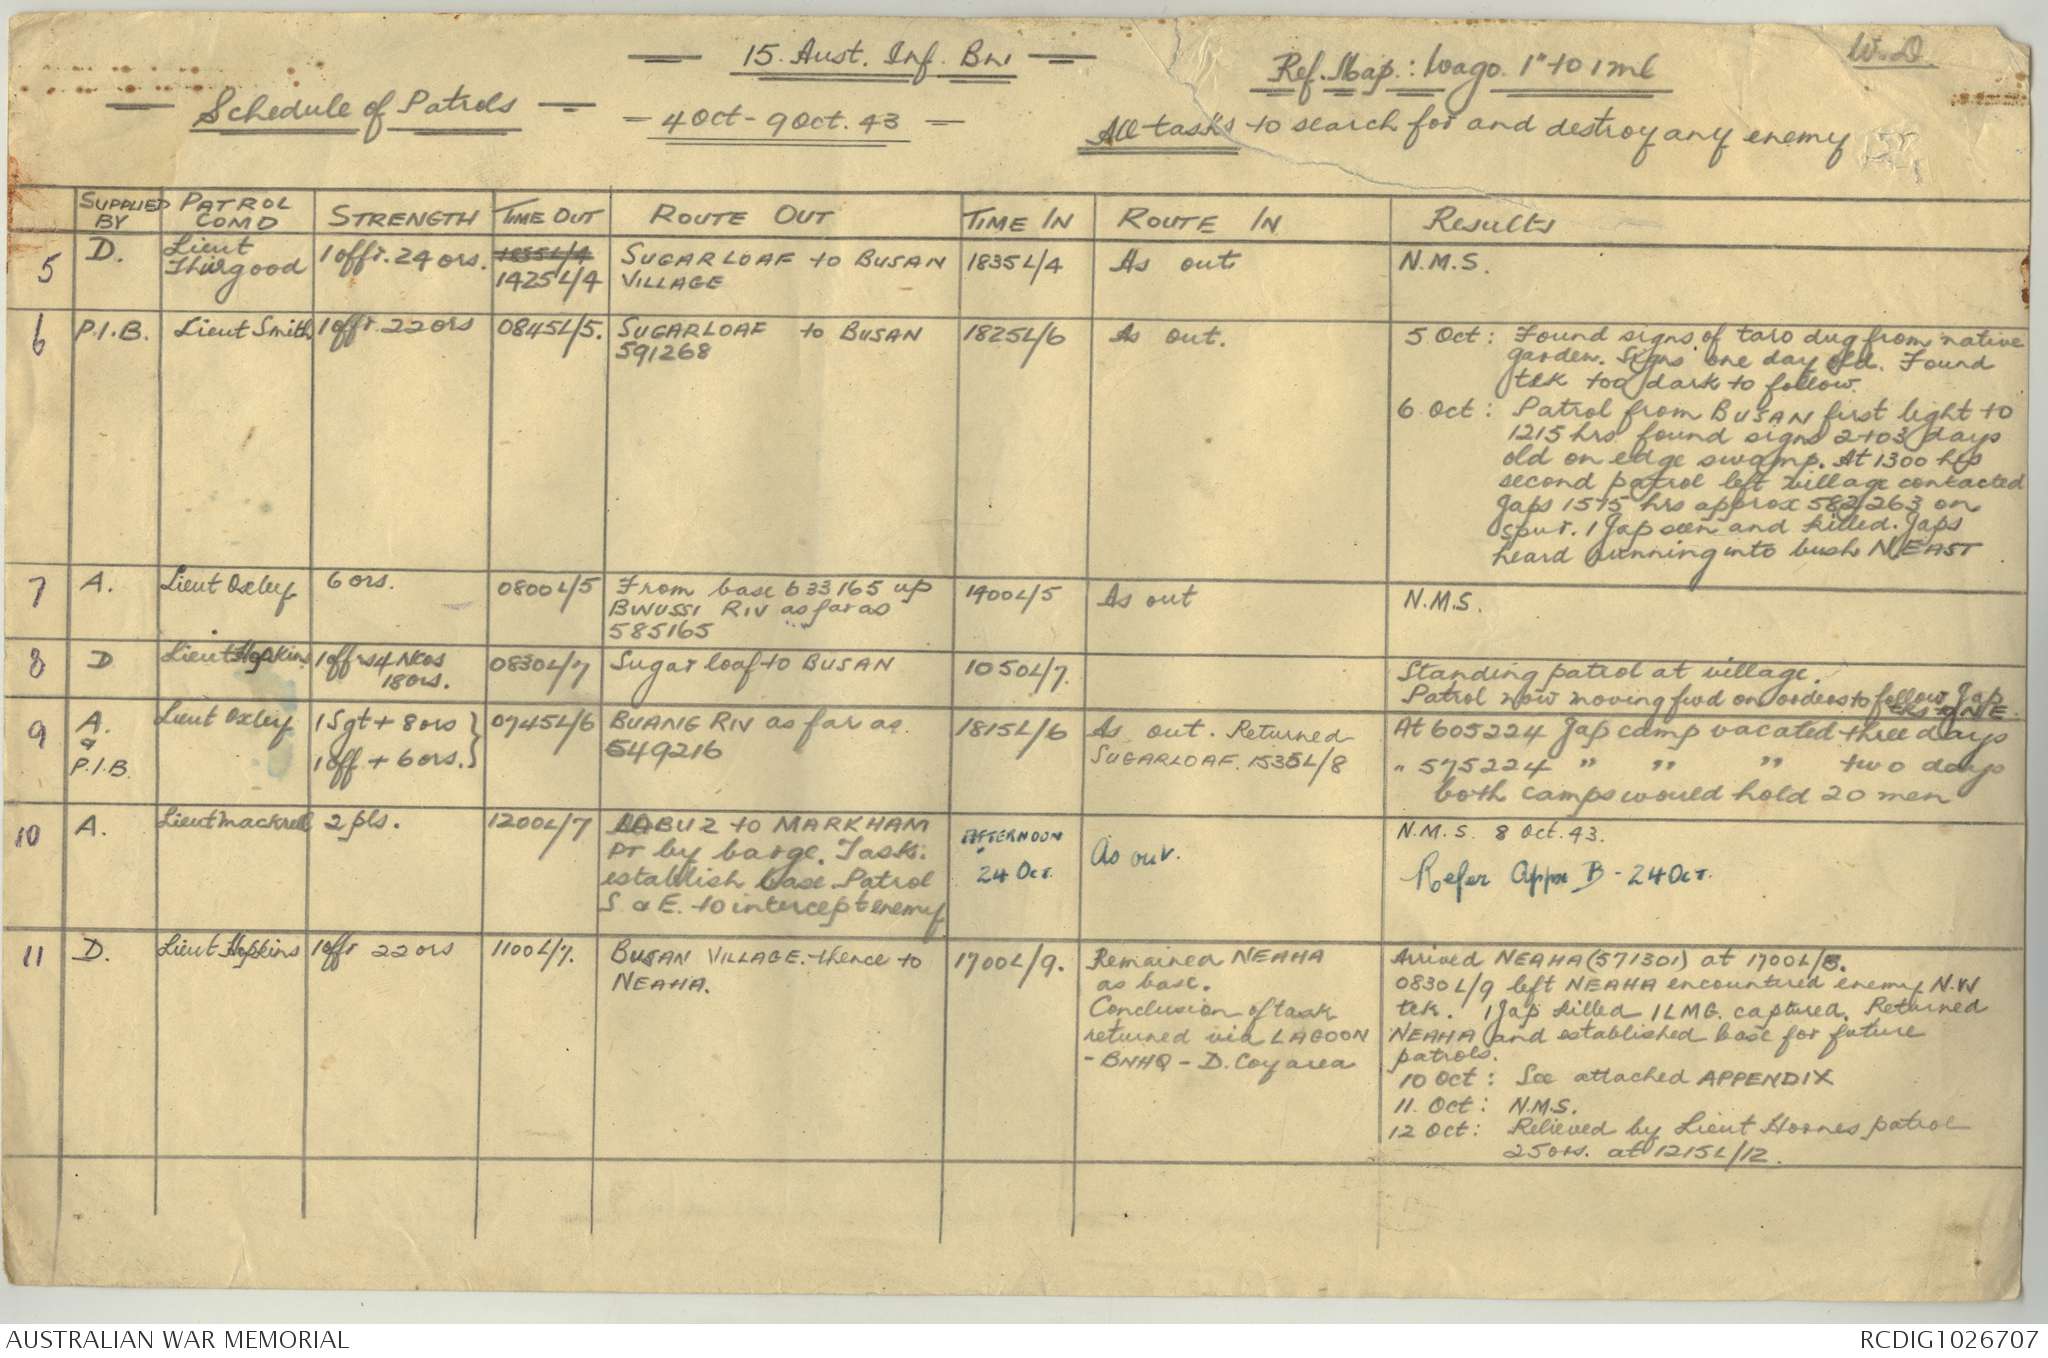 15. Aust. Inf. Bn
Ref. Map: Wago. 1" to 1 ml
W.D.
Schedule of Patrols
- 4 Oct - 9 Oct. 43 -
All tasks to search for and destroy any enemy
SUPPLIED BY
PATROL COMD
STRENGTH
TIME OUT
ROUTE OUT
TIME IN
ROUTE IN
Results
5
D.
Lieut
Thurgood
1 offr. 24 ors.
1835L/4
1425L/4
SUGARLOAF to BUSAN
VILLAGE
1835L/4
As out
N.M.S.
6
P.I.B.
Lieut Smith
1 offr. 22 ors
0845L/5.
SUGARLOAF to BUSAN
591268
1825L/6
As out.
5 Oct: Found signs of taro dug from native
garden. Signs one day old. Found
tck too dark to follow.
6 Oct: Patrol from BUSAN first light to
1215 hrs found signs 2 to 3 days
old on edge swamp. At 1300 hrs
second patrol left village contacted
Japs 1515 hrs approx 582263 on
spur. 1 Jap seen and killed. Japs
heard running into bush N.EAST
7
A.
Lieut Oxley
6 ors.
0800L/5
From base 633165 up
BWUSSI RIV as far as
585165
1400L/5
As out
N.M.S.
8
D
Lieut Hopkins
1 offrs 4 NCOs
18 ors.
0830L/7
Sugar loaf to BUSAN
1050L/7.
Standing patrol at village.
Patrol now moving fwd on orders to follow Jap
tks to NE.
9
A.
&
P.I.B.
Lieut Oxley
1 Sgt + 8 ors }
1 off + 6 ors. }
0745L/6
BUANG RIV as far as
549216
1815L/6
As out. Returned
SUGARLOAF. 1535L/8
At 605224 Jap camp vacated three days
" 575224 " " " two days
both camps would hold 20 men
10
A.
Lieut Mackrell
2 pls.
1200L/7
LABU 2 to MARKHAM
pt by barge. Task:
establish base. Patrol
S & E. to intercept enemy
AFTERNOON
24 Oct.
As out.
N.M.S. 8 Oct. 43.
Refer Appx B - 24 Oct.
11
D.
Lieut Hopkins
1 offr 22 ors
1100L/7.
BUSAN VILLAGE. thence to
NEAHA.
1700L/9.
Remained NEAHA
as base.
Conclusion of task
returned via LAGOON
- BNHQ - D. Coy area
Arrived NEAHA (571301) at 1700L/8.
0830L/9 left NEAHA encountered enemy N.W
tck. 1 Jap killed 1 LMG. captured. Returned
NEAHA and established base for future
patrols.
10 Oct: See attached APPENDIX
11 Oct: N.M.S.
12 Oct: Relieved by Lieut Hornes patrol
25 ors. at 1215L/12.
AUSTRALIAN WAR MEMORIAL
RCDIG1026707